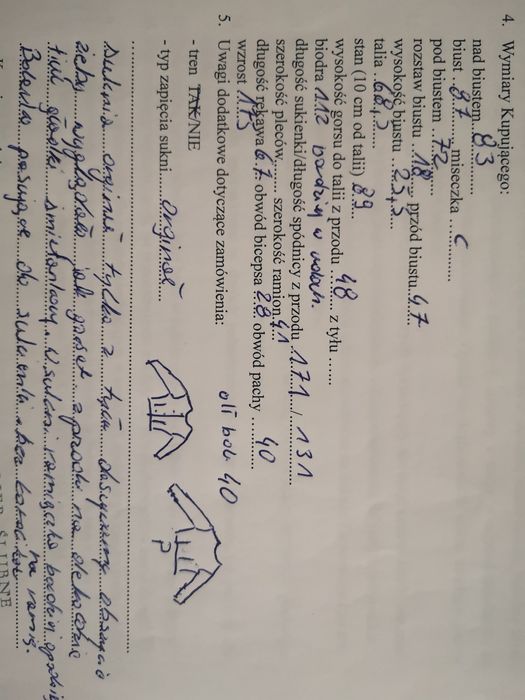 4. Wymiary Kupującego:
nad biustem 83
biust 87 miseczka C
pod biustem 72
rozstaw biustu 18 przód biustu 47
wysokość biustu 25,5
talia 68,5
stan (10 cm od talii) 89
wysokość gorsu do talii z przodu 48 z tyłu ......
biodra 112 bardziej w udach.
długość sukienki/długość spódnicy z przodu 171 / 131
szerokość pleców....... szerokość ramion 41
długość rękawa 67 obwód bicepsa 28 obwód pachy 40
wzrost 173
5. Uwagi dodatkowe dotyczące zamówienia:
bok 40
- tren TAK/NIE
- typ zapięcia sukni orginał
Suknia orginał tylko z tyłu
żeby wyglądała jak gorset z przodu na dekolcie
tiul gładki śmietankowy
na ramię.
Bolerko pasujące do sukienki bez koronki